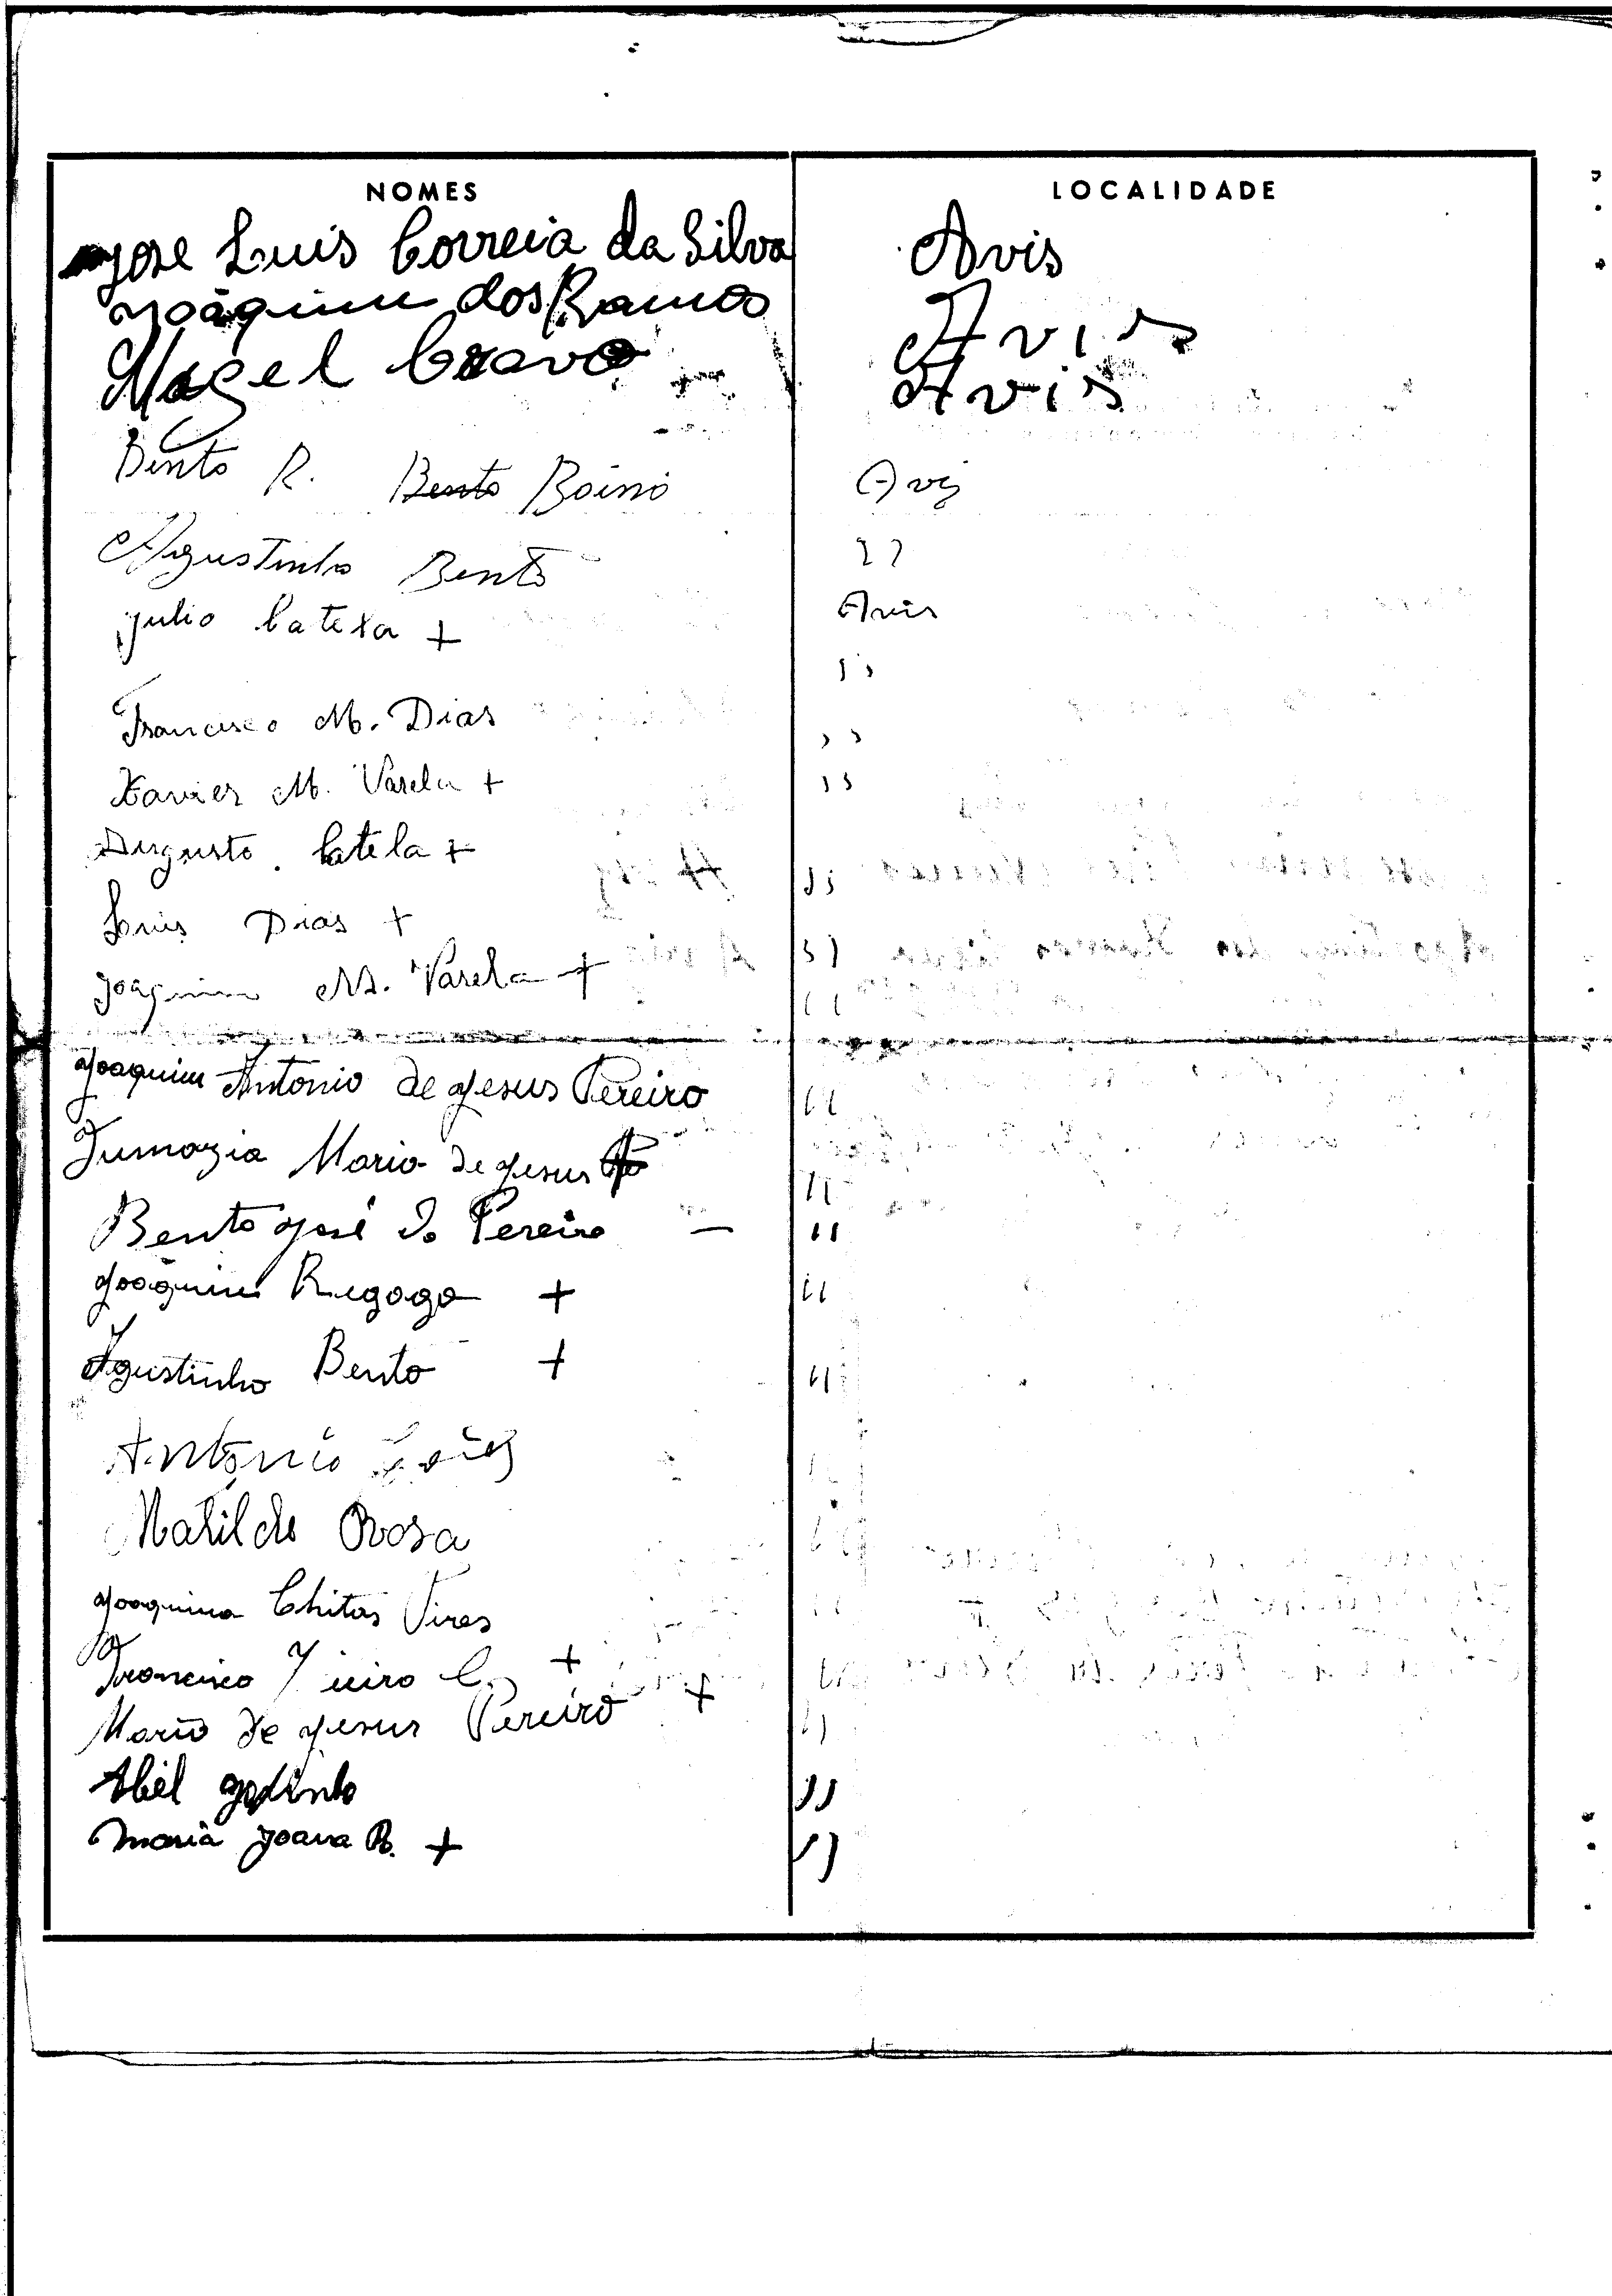 NOMES LOCALIDADE
Jose Luis Correia da Silva Avis
Joaquim dos Ramos Avis
Magel Cravo Avis
Bento R. Bento Avis
Agustinho Bento ,,
Julio Catexa + Avis
Francisco M. Dias ,,
Xavier M. Varela + ,,
Augusto Catela + ,,
Luis Dias + ,,
Joaquim M. Varela + ,,
Joaquim Antonio de Jesus Pereiro ,,
Maria de Jesus ,,
Bento José do Pereiro — ,,
Joaquim + ,,
Agustinho Bento + ,,
Antonio
Matilde Rosa
Joaquina Chitas Pires
Francisco +
Maria de Jesus Pereiro + ,,
Abil godinho ,,
maria Joana R. + ,,